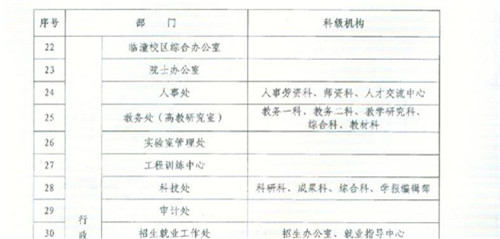 序号 部 门 科级机构
22 临潼校区综合办公室
23 院士办公室
24 人事处 人事劳资科、师资科、人才交流中心
25 教务处（高教研究室） 教务一科、教务二科、教学研究科、
综合科、教材科
26 实验室管理处
27 工程训练中心
28 科技处 科研科、成果科、综合科、学报编辑部
29 审计处
行
30 招生就业工作处 招生办公室、就业指导中心
政